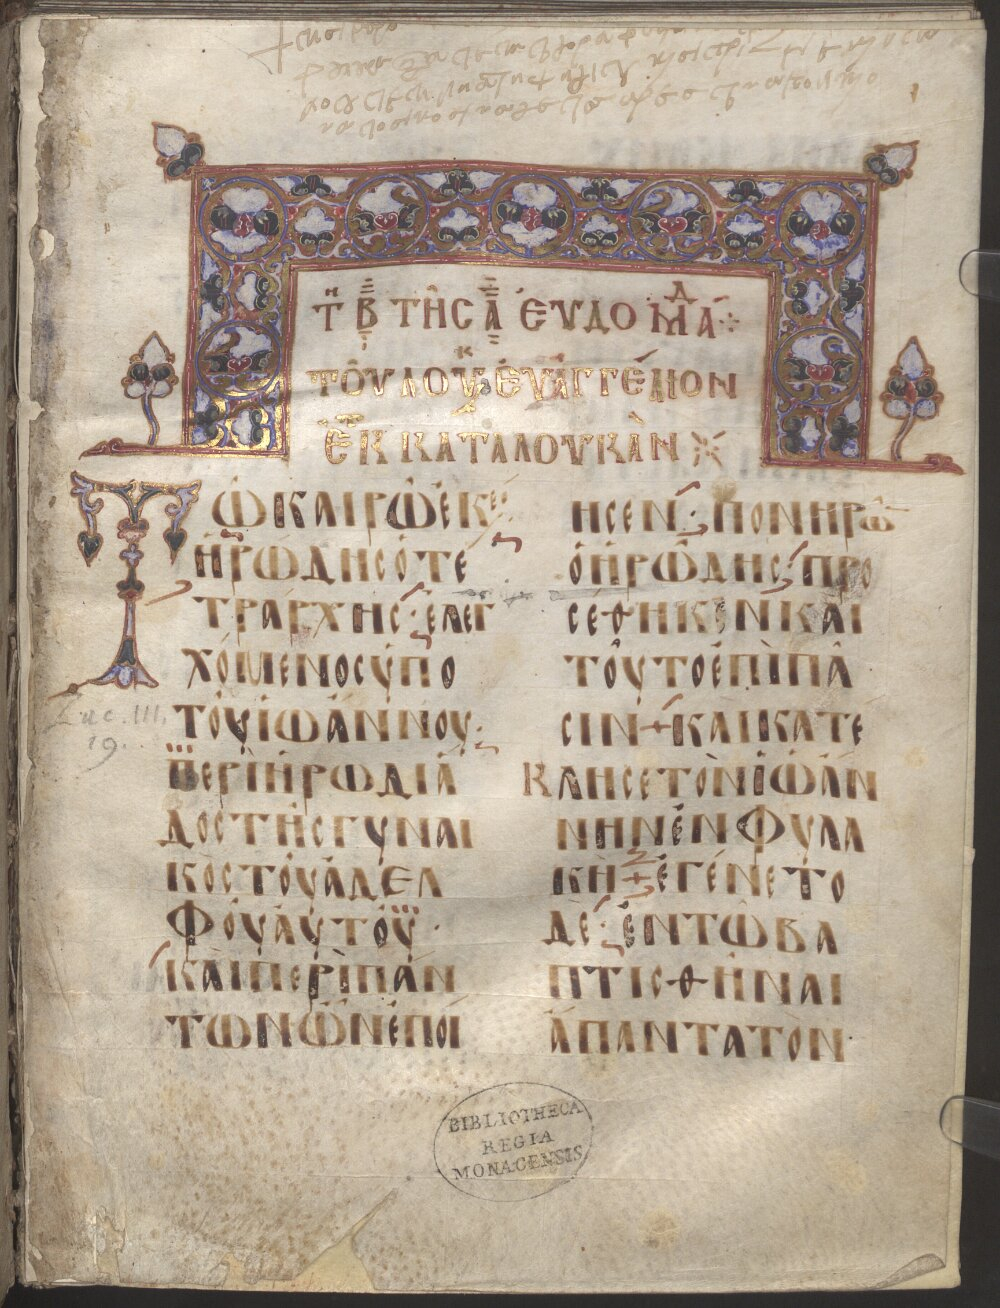 Τῇ Β̄ ΤῆC Ᾱ ἙΥΔΟΜΆΔ
ΤΟῦ ΛΟΥΚ ἘΥΑΓΓΈΛΙΟΝ
ἘΚ ΚΑΤΑ ΛΟΥΚᾺΝ
ΤῶΚΑΙΡῶἘΚΕΙ
ἩΡΏΔΗCὉΤΕ
ΤΡΆΡΧΗC· ἘΛΕΓ
ΧΌΜΕΝΟCὙΠΟ
ΤΟΥἸΩΆΝΝΟΥ·
ΠΕΡῚἩΡΩΔΙΆ
ΔΟCΤῆCΓΥΝΑΙ
ΚῸCΤΟΥἈΔΕΛ
ΦΟΥἈΥΤΟΥ·
ΚΑῚΠΕΡῚΠΆΝ
ΤΩΝὯΝἘΠΟΊ
ΗCΕΝ· ΠΟΝΗΡῶ
ὉἩΡΏΔΗC· ΠΡΟ
CΕΘΗΚΕΝΚΑΙ
ΤΟΥΤΟἘΠῚΠᾶ
CΙΝ + ΚΑΙΚΑΤΈ
ΚΛΗCΕΤῸΝἸΩΆΝ
ΝΗΝἘΝΦΥΛΑ
Κῆ + ἘΓΈΝΕΤΟ
ΔΕ· ἘΝΤῶΒΑ
ΠΤΙCΘῆΝΑΙ
ἍΠΑΝΤΑΤΟΝ·
Luc. III,
19.
BIBLIOTHECA
REGIA
MONACENSIS